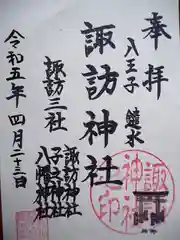 奉拝
八王子 鑓水
諏訪神社
諏訪三社
諏訪神社
子之神社
八幡神社
令和五年四月二十三日
諏訪神社之印